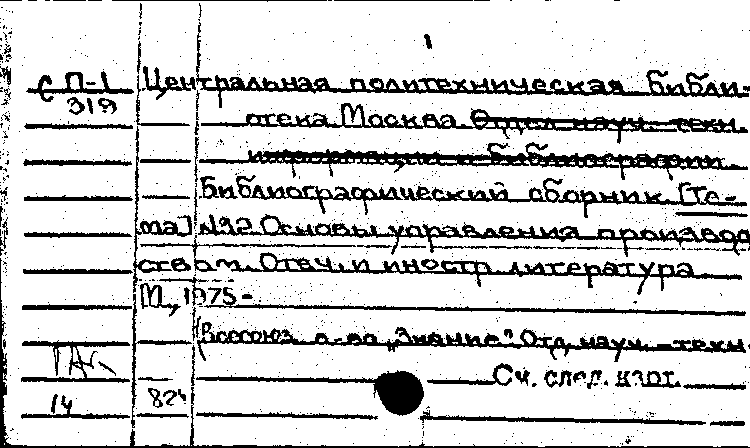 1
С П-1 Центральная политехническая библи-
319 отека. Москва. Отдел науч.-техн.
информации и библиографии.
Библиографический сборник. [Те-
ма] №92. Основы управления производ
ством. Отеч. и иностр. литература
М., 1975-
(Всесоюз. о-во „Знание". Отд. науч.-техн
См. след. карт.
14 824